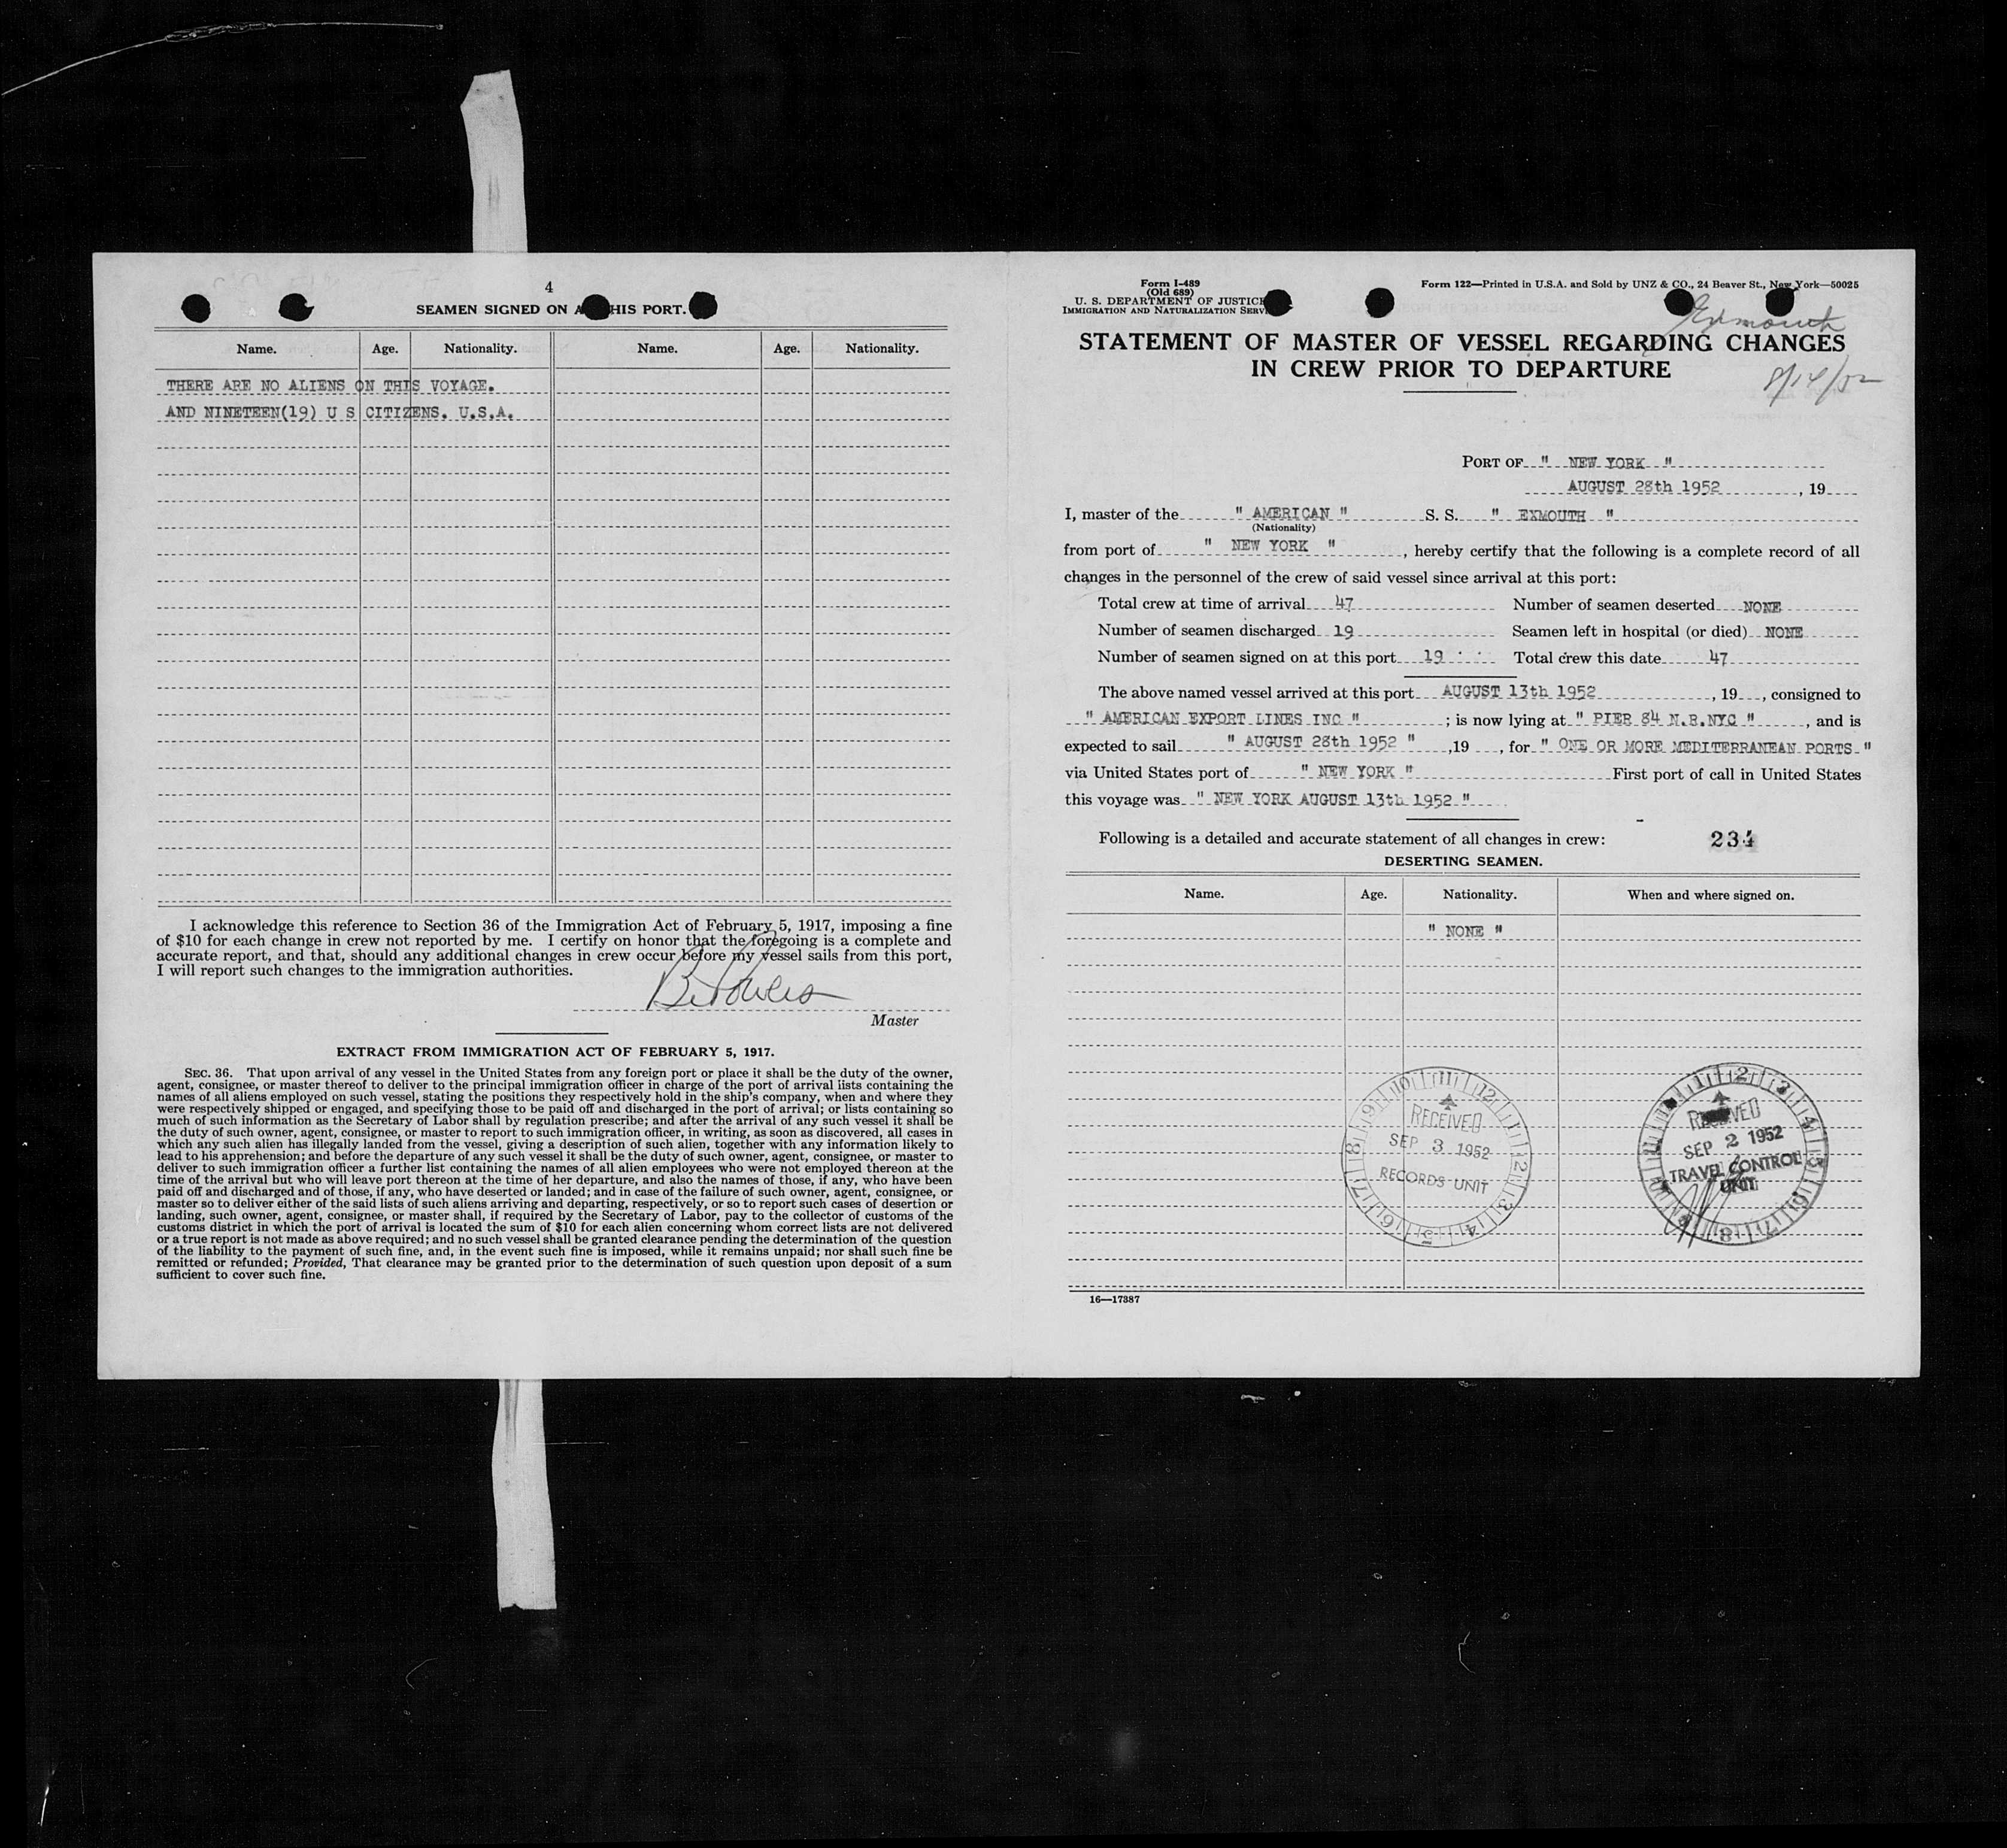 4
SEAMEN SIGNED ON A HIS PORT.
Name. Age. Nationality. Name. Age. Nationality.
THERE ARE NO ALIENS ON THIS VOYAGE.
AND NINETEEN(19) U S CITIZENS. U.S.A.
I acknowledge this reference to Section 36 of the Immigration Act of February 5, 1917, imposing a fine
of $10 for each change in crew not reported by me. I certify on honor that the foregoing is a complete and
accurate report, and that, should any additional changes in crew occur before my vessel sails from this port,
I will report such changes to the immigration authorities.
Master
EXTRACT FROM IMMIGRATION ACT OF FEBRUARY 5, 1917.
SEC. 36. That upon arrival of any vessel in the United States from any foreign port or place it shall be the duty of the owner,
agent, consignee, or master thereof to deliver to the principal immigration officer in charge of the port of arrival lists containing the
names of all aliens employed on such vessel, stating the positions they respectively hold in the ship's company, when and where they
were respectively shipped or engaged, and specifying those to be paid off and discharged in the port of arrival; or lists containing so
much of such information as the Secretary of Labor shall by regulation prescribe; and after the arrival of any such vessel it shall be
the duty of such owner, agent, consignee, or master to report to such immigration officer, in writing, as soon as discovered, all cases in
which any such alien has illegally landed from the vessel, giving a description of such alien, together with any information likely to
lead to his apprehension; and before the departure of any such vessel it shall be the duty of such owner, agent, consignee, or master to
deliver to such immigration officer a further list containing the names of all alien employees who were not employed thereon at the
time of the arrival but who will leave port thereon at the time of her departure, and also the names of those, if any, who have been
paid off and discharged and of those, if any, who have deserted or landed; and in case of the failure of such owner, agent, consignee, or
master so to deliver either of the said lists of such aliens arriving and departing, respectively, or so to report such cases of desertion or
landing, such owner, agent, consignee, or master shall, if required by the Secretary of Labor, pay to the collector of customs of the
customs district in which the port of arrival is located the sum of $10 for each alien concerning whom correct lists are not delivered
or a true report is not made as above required; and no such vessel shall be granted clearance pending the determination of the question
of the liability to the payment of such fine, and, in the event such fine is imposed, while it remains unpaid; nor shall such fine be
remitted or refunded; Provided, That clearance may be granted prior to the determination of such question upon deposit of a sum
sufficient to cover such fine.
Form I-489
(Old 689)
U. S. DEPARTMENT OF JUSTICE
IMMIGRATION AND NATURALIZATION SERV
Form 122—Printed in U.S.A. and Sold by UNZ & CO., 24 Beaver St., New York—50025
Exmouth
8/14/52
STATEMENT OF MASTER OF VESSEL REGARDING CHANGES
IN CREW PRIOR TO DEPARTURE
PORT OF " NEW YORK "
AUGUST 28th 1952 , 19
I, master of the " AMERICAN " S. S. " EXMOUTH "
(Nationality)
from port of " NEW YORK " , hereby certify that the following is a complete record of all
changes in the personnel of the crew of said vessel since arrival at this port:
Total crew at time of arrival 47 Number of seamen deserted NONE
Number of seamen discharged 19 Seamen left in hospital (or died) NONE
Number of seamen signed on at this port 19 Total crew this date 47
The above named vessel arrived at this port AUGUST 13th 1952 , 19 , consigned to
" AMERICAN EXPORT LINES INC " ; is now lying at " PIER 84 N.R.NYC " , and is
expected to sail " AUGUST 28th 1952 " ,19 , for " ONE OR MORE MEDITERRANEAN PORTS "
via United States port of " NEW YORK " First port of call in United States
this voyage was " NEW YORK AUGUST 13th 1952 "
Following is a detailed and accurate statement of all changes in crew: 234
DESERTING SEAMEN.
Name. Age. Nationality. When and where signed on.
" NONE "
RECEIVED
SEP 3 1952
RECORDS UNIT
RECEIVED
SEP 2 1952
TRAVEL CONTROL
UNIT
16—17387